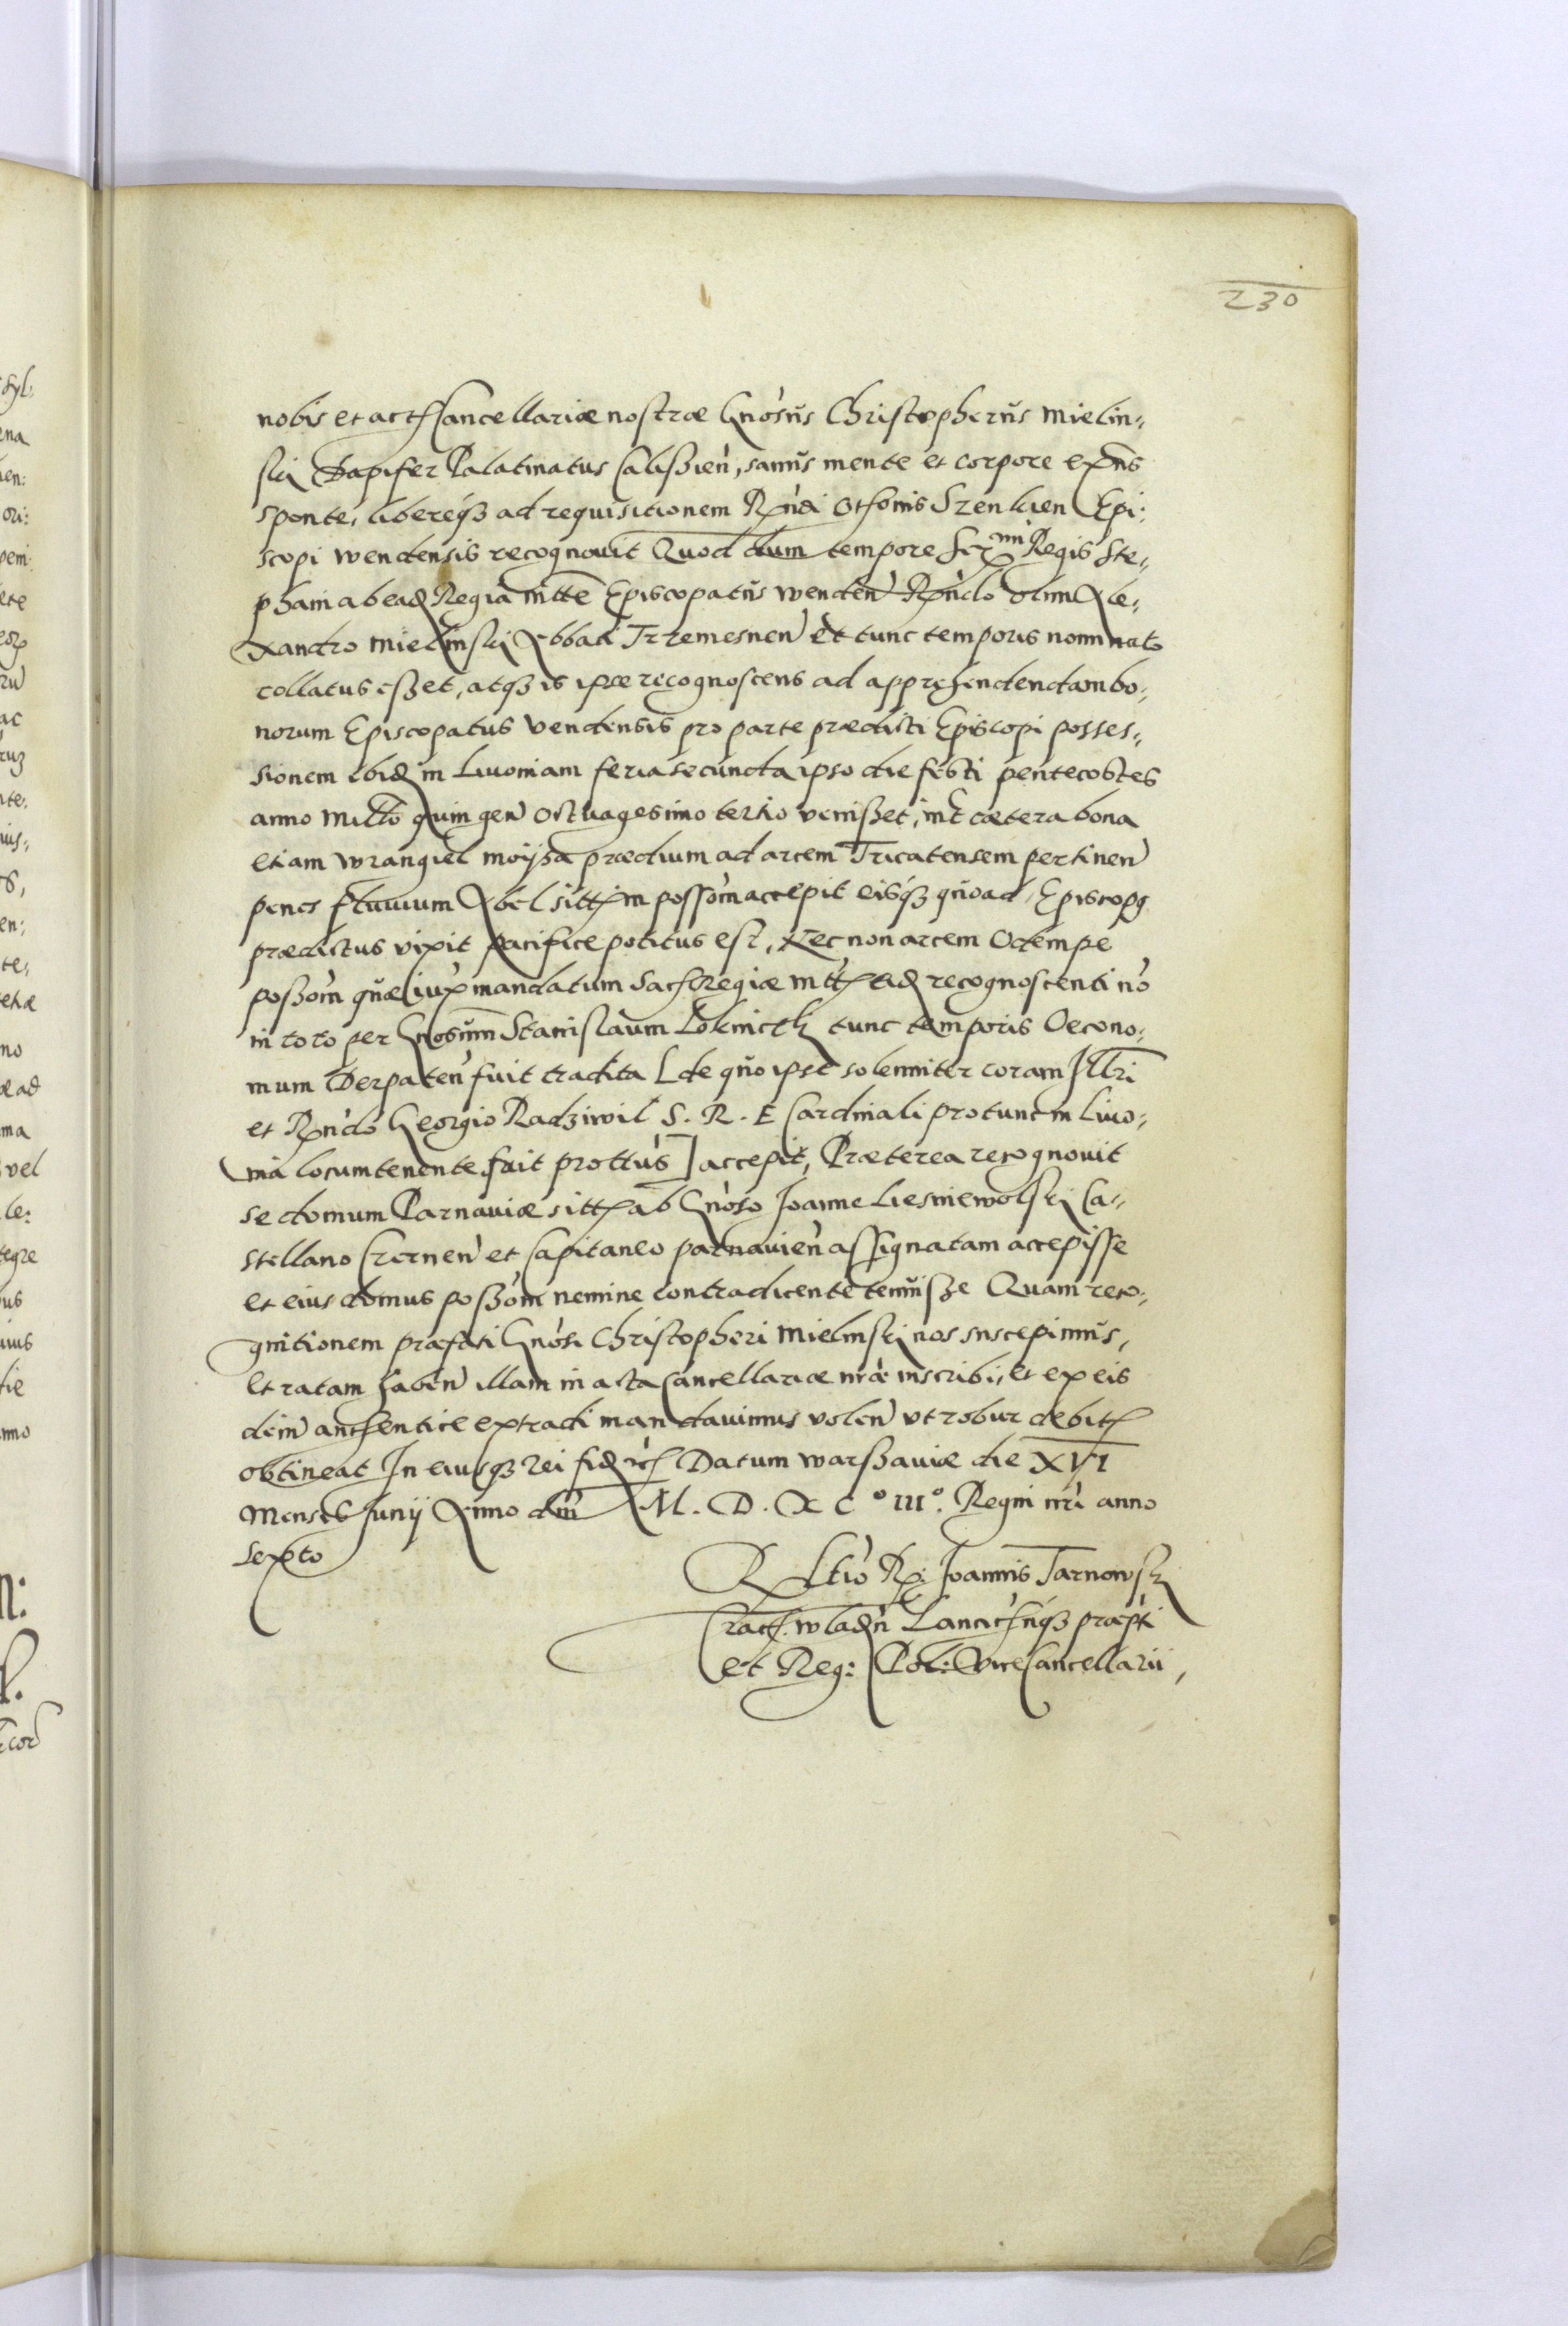 230
nobis et act Cancellariæ nostræ Gnosus Christopherus Mielin„
ski Dapifer Palatinatus Calissien, sanus mente et corpore exns
sponte, libereqz ad requisitionem Rndi Othonis Szenkien Epi:
scopi Wendensis recognouit Quod dum tempore Ser mi Regis Ste„
phani ab ead Regia mtte Episcopatus Wenden Rndo olim Ale„
xandro Mielinski Abbati Trzemesnen et tunc temporis nominato
collatus eszet, atqz is ipse recognoscens ad apprehendendam bo„
norum Episcopatus Vendensis pro parte prædicti Episcopi posses„
sionem ibid in Liuoniam feria secunda ipso die festi pentecostes
anno millo quingen octuagesimo tertio veniszet, int cætera bona
etiam Wrangiel moÿza prædium ad arcem Tricatensem pertinen
penes fluuium Abel sitt in possom accepit eisqz quoad Episcopg
prædictus vixit pacifice potitus est, Nec non arcem Odempe
poszom quæ iux mandatum Sac Regiæ mtt eid recognoscenti no
in toto per Gnosum Stanislaum Lokniczk tunc temporis Oecono„
mum Derpaten fuit tradita [de quo ipse solenniter coram Illri
et Rndo Georgio Radziwil S. R. E Cardinali pro tunc in Liuo„
nia locumtenente fuit prottus] accepit, Præterea recognouit
se domum Parnauiæ sitt ab Gnoso Joanne Liesniewolski Ca„
stellano Czernen et Capitaneo parnauien assignatam accepisse
et eius domus poszom nemine contradicente tenuisze Quam reco„
gnitionem præfati Gnosi Christopheri Mielinski nos suscepimus,
et ratam haben illam in acta Cancellariæ nræ inscribi, et ex eis
dem authentice extradi mandauimus volen vt robur debit
obtineat In cuiusqz rei fid etc Datum Warszauiæ die XVI
Mensis Junij Anno dni M. D. X C º III º. Regni nri anno
sexto
Rltio R. Joannis Tarnowsk
Crac. Wladn Lancicnqz præpti
et Reg: Pol: ViceCancellarii,